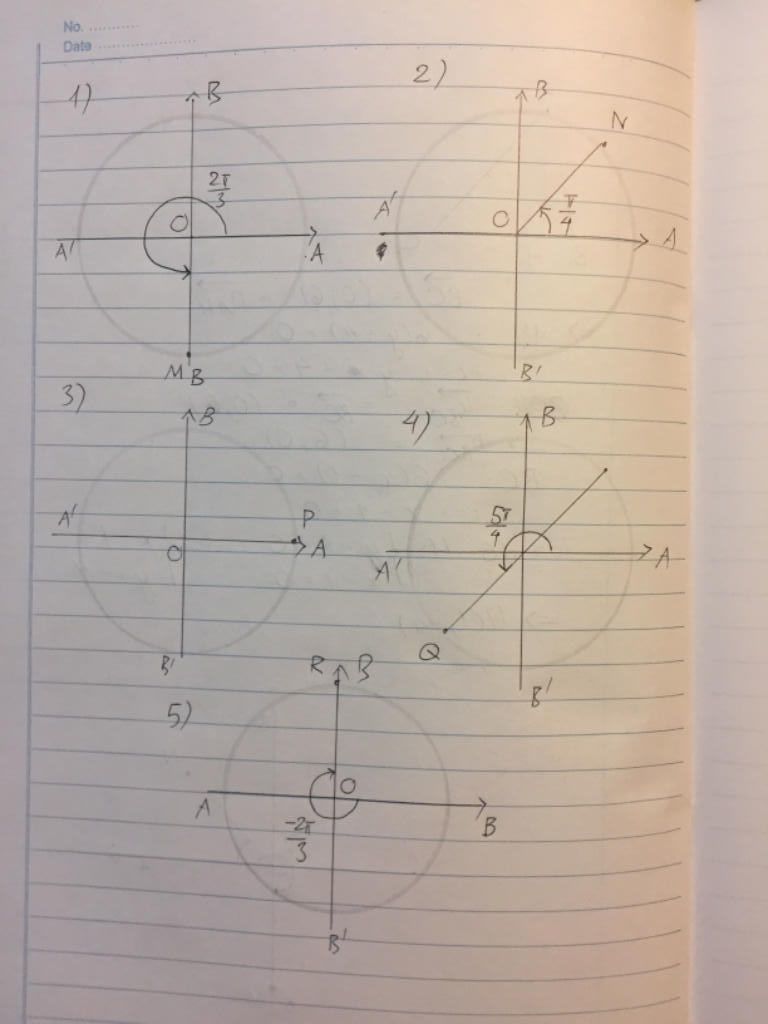 No. ..........
Date ......................
1)
B
2π/3
O
A'
A
M B
2)
B
N
A'
O
π/4
A
B'
3)
B
A'
P
O
A
B'
4)
B
5π/4
A'
A
Q
B'
5)
R B
O
A
B
-2π/3
B'